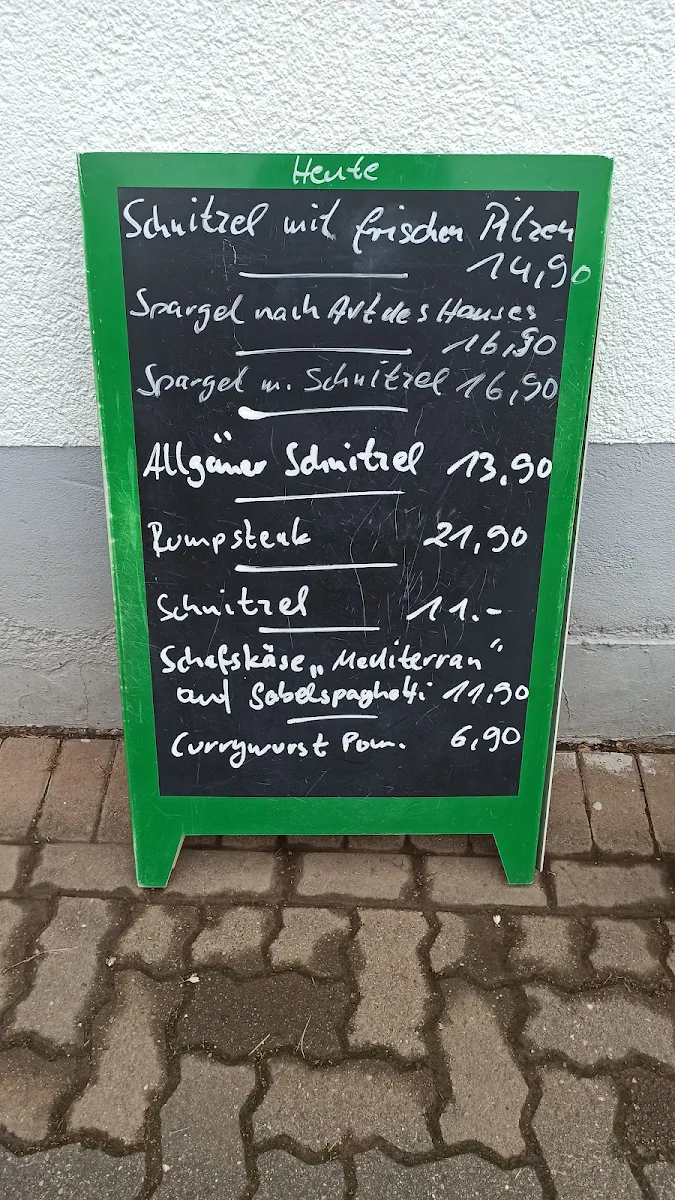 Heute
Schnitzel mit frischen Pilzen
14,90
Spargel nach Art des Hauses
16,90
Spargel m. Schnitzel 16,90
Allgäuer Schnitzel 13,90
Rumpsteak 21,90
Schnitzel 11.-
Schafskäse „Mediterran"
auf Sabelspaghetti 11,90
Currywurst Pom. 6,90